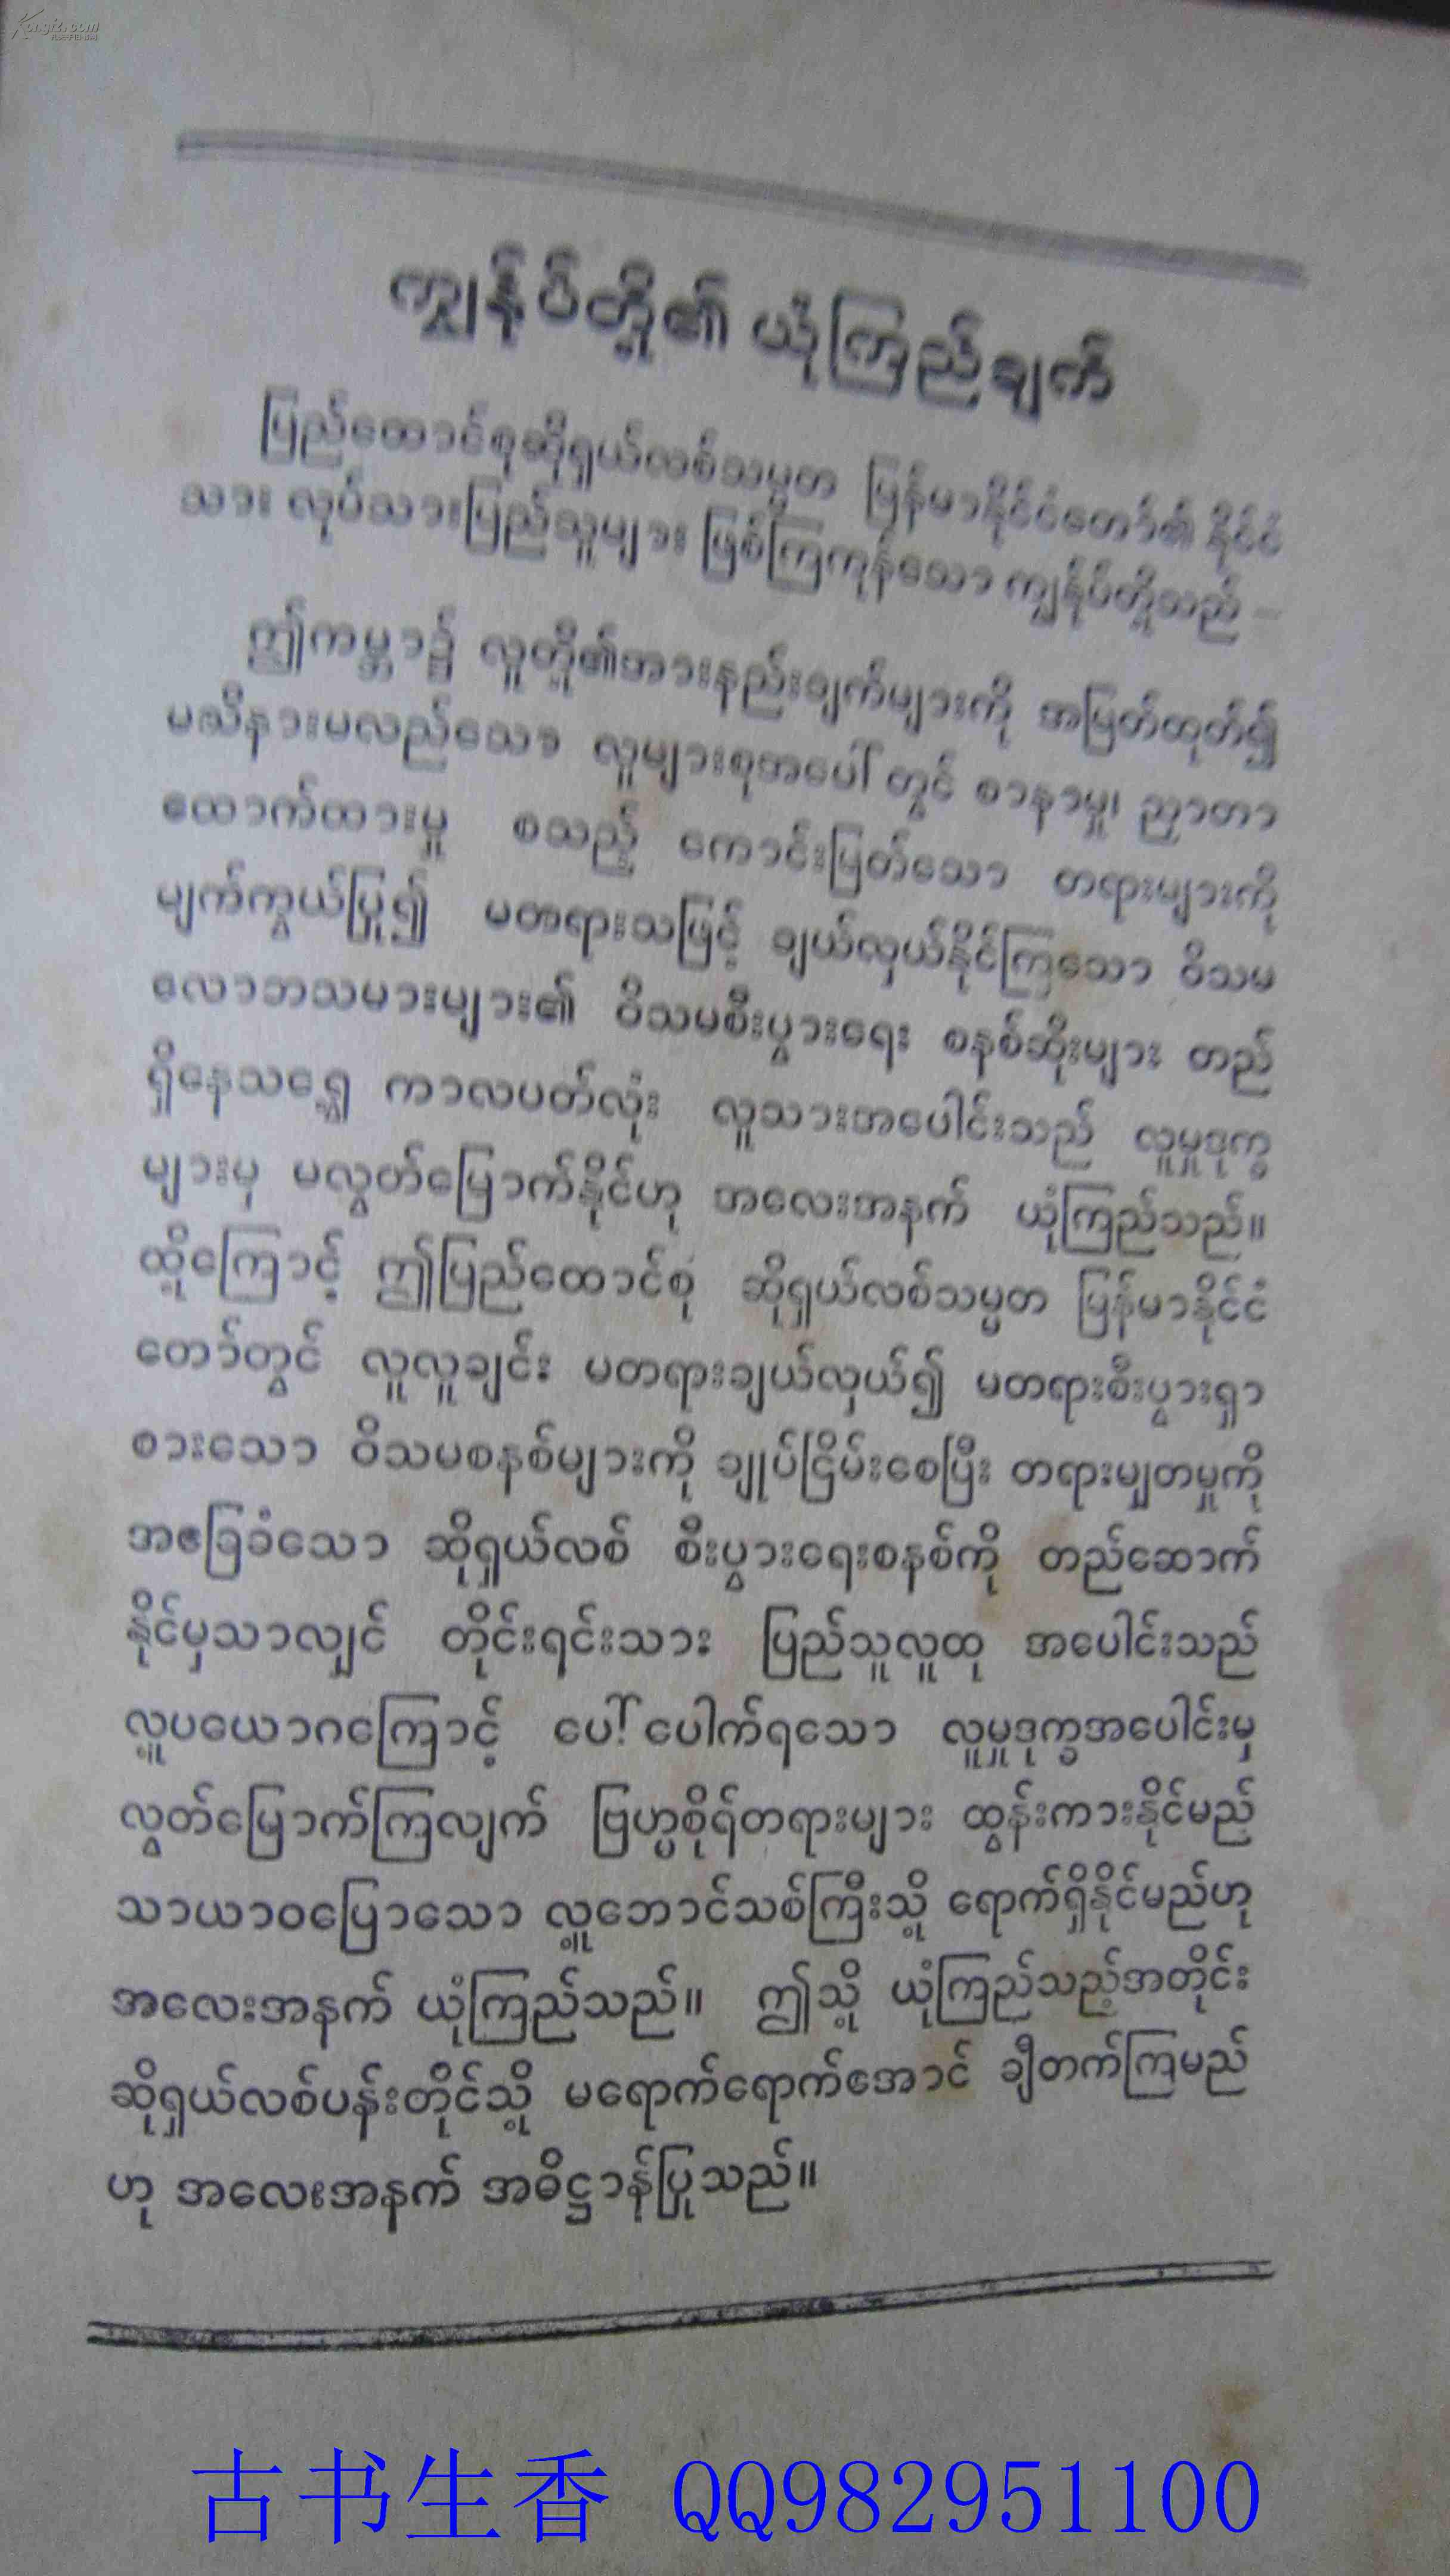 Kongfz.com
ကျွန်ုပ်တို့၏ ယုံကြည်ချက်
ပြည်ထောင်စုဆိုရှယ်လစ်သမ္မတ မြန်မာနိုင်ငံတော်၏ နိုင်ငံ
သား လုပ်သားပြည်သူများ ဖြစ်ကြကုန်သော ကျွန်ုပ်တို့သည် —
ဤကမ္ဘာ၌ လူတို့၏အားနည်းချက်များကို အမြတ်ထုတ်၍
မသိနားမလည်သော လူများစုအပေါ်တွင် စာနာမှု၊ ညှာတာ
ထောက်ထားမှု စသည့် ကောင်းမြတ်သော တရားများကို
မျက်ကွယ်ပြု၍ မတရားသဖြင့် ချယ်လှယ်နိုင်ကြသော ဝိသမ
လောဘသမားများ၏ ဝိသမစီးပွားရေး စနစ်ဆိုးများ တည်
ရှိနေသရွေ့ ကာလပတ်လုံး လူသားအပေါင်းသည် လူမှုဒုက္ခ
များမှ မလွတ်မြောက်နိုင်ဟု အလေးအနက် ယုံကြည်သည်။
ထို့ကြောင့် ဤပြည်ထောင်စု ဆိုရှယ်လစ်သမ္မတ မြန်မာနိုင်ငံ
တော်တွင် လူလူချင်း မတရားချယ်လှယ်၍ မတရားစီးပွားရှာ
စားသော ဝိသမစနစ်များကို ချုပ်ငြိမ်းစေပြီး တရားမျှတမှုကို
အခြေခံသော ဆိုရှယ်လစ် စီးပွားရေးစနစ်ကို တည်ဆောက်
နိုင်မှသာလျှင် တိုင်းရင်းသား ပြည်သူလူထု အပေါင်းသည်
လူ့ပယောဂကြောင့် ပေါ်ပေါက်ရသော လူမှုဒုက္ခအပေါင်းမှ
လွတ်မြောက်ကြလျက် ဗြဟ္မစိုရ်တရားများ ထွန်းကားနိုင်မည်
သာယာဝပြောသော လူ့ဘောင်သစ်ကြီးသို့ ရောက်ရှိနိုင်မည်ဟု
အလေးအနက် ယုံကြည်သည်။ ဤသို့ ယုံကြည်သည့်အတိုင်း
ဆိုရှယ်လစ်ပန်းတိုင်သို့ မရောက်ရောက်အောင် ချီတက်ကြမည်
ဟု အလေးအနက် အဓိဋ္ဌာန်ပြုသည်။
古书生香 QQ982951100